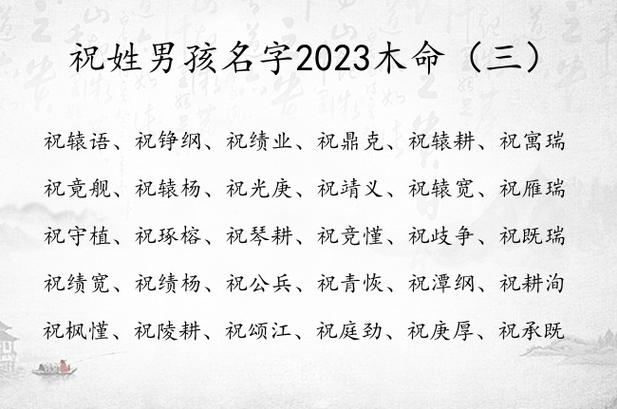 祝姓男孩名字2023木命（三）
祝辕语、祝铮纲、祝绩业、祝鼎克、祝辕耕、祝寓瑞
祝竞舰、祝辕杨、祝光庚、祝靖义、祝辕宽、祝雁瑞
祝守植、祝琢榕、祝琴耕、祝竞慬、祝歧争、祝既瑞
祝绩宽、祝绩杨、祝公兵、祝青恢、祝潭纲、祝耕洵
祝枫慬、祝陵耕、祝颂江、祝庭劲、祝庚厚、祝承既